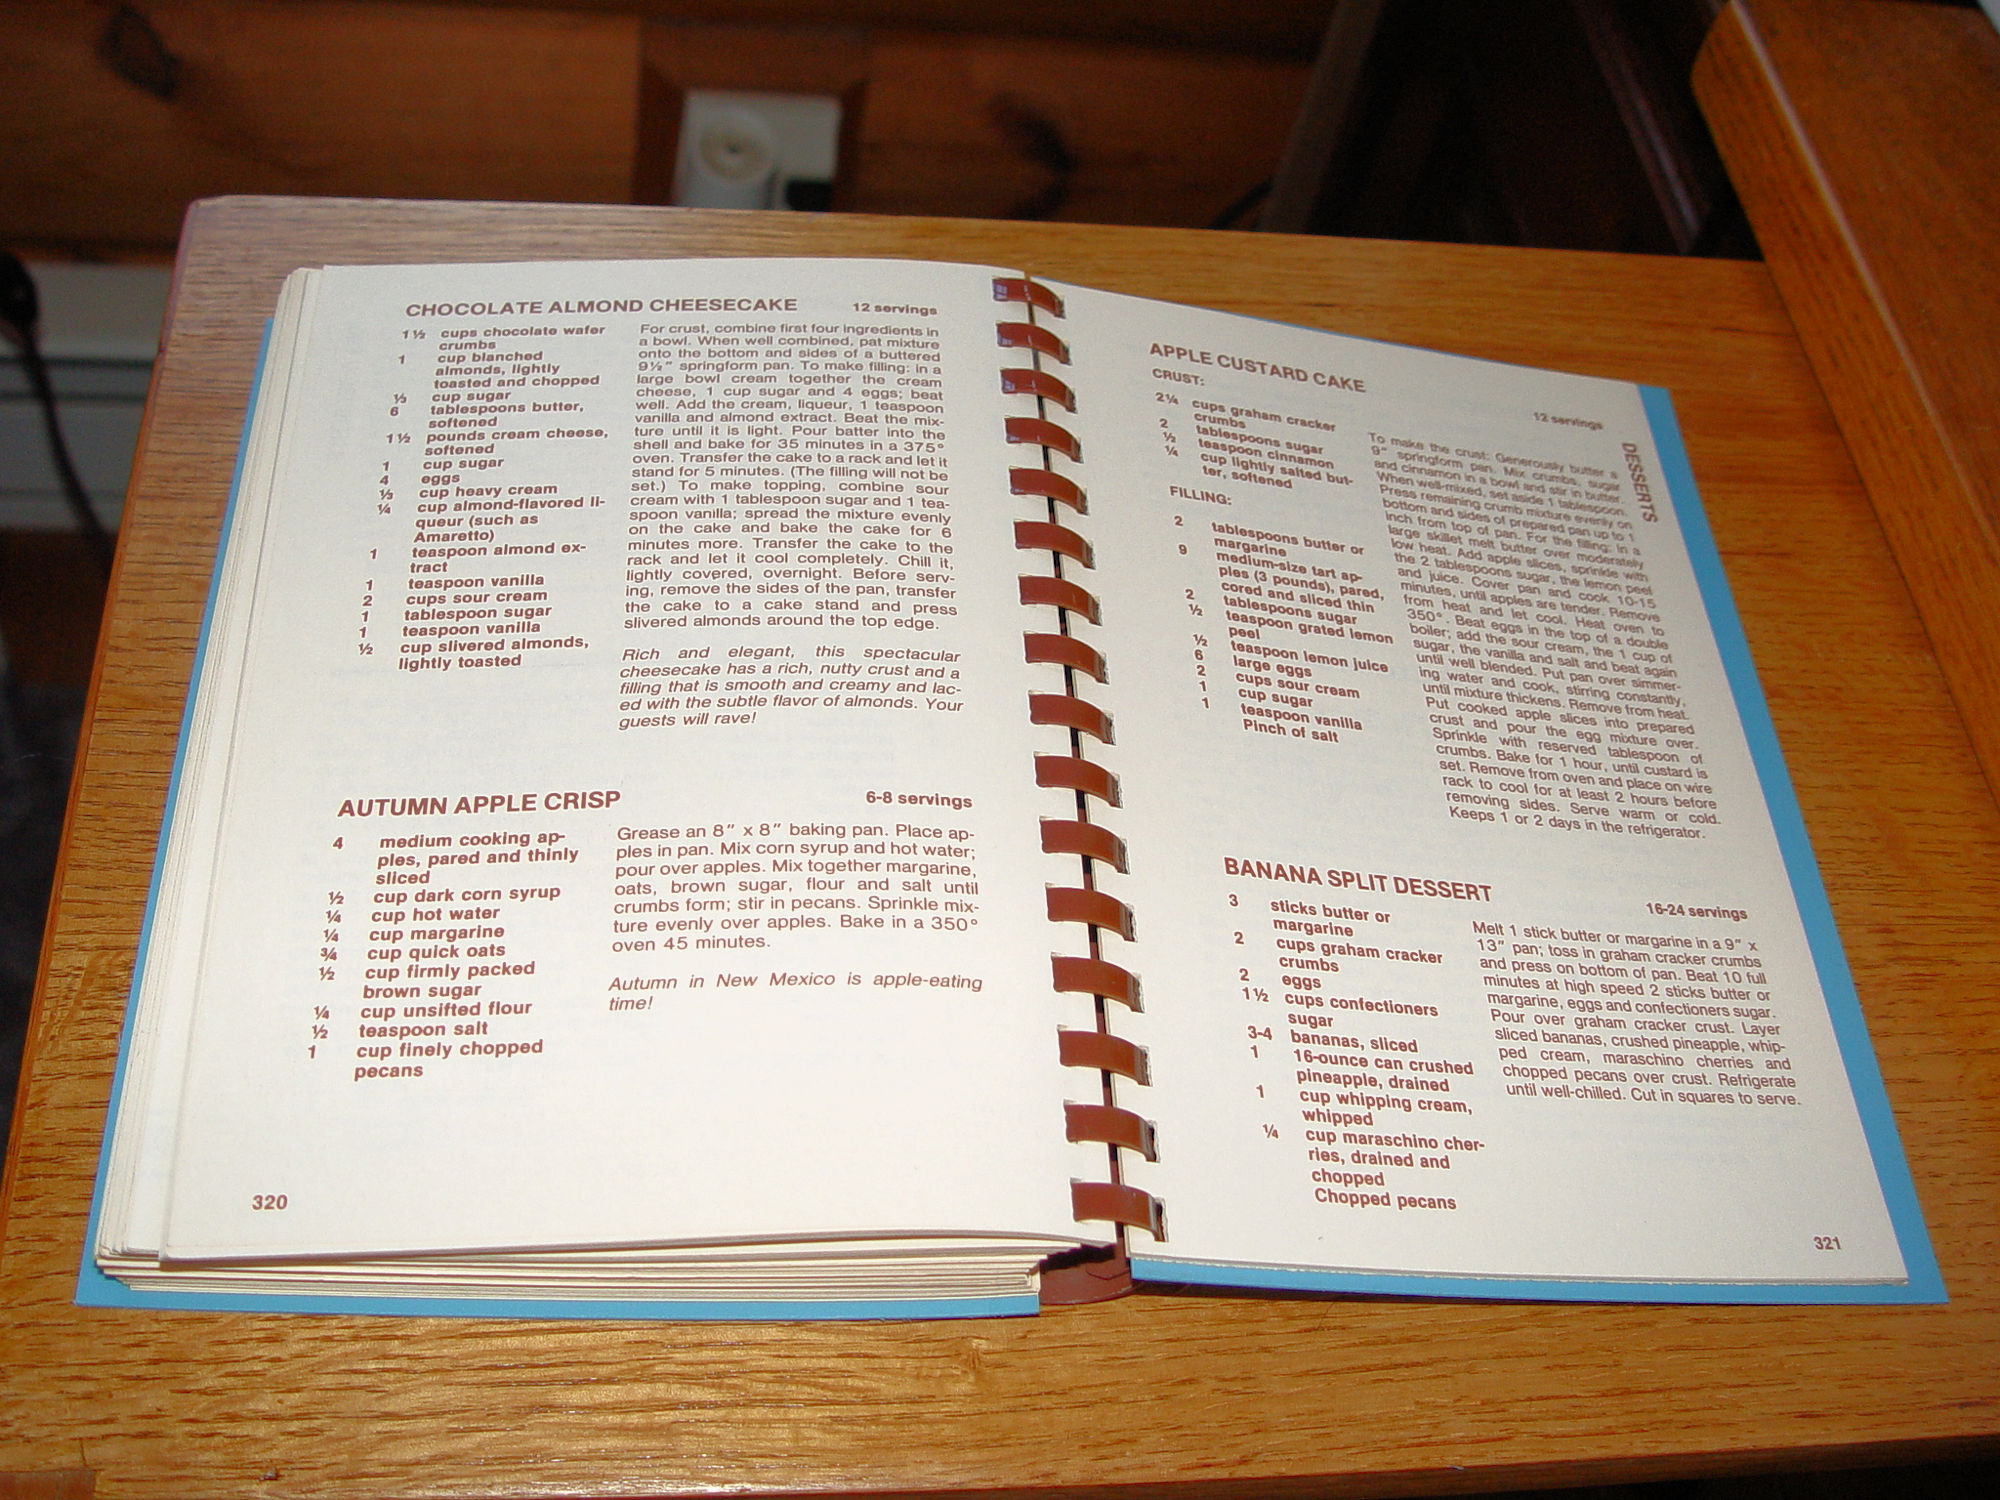 CHOCOLATE ALMOND CHEESECAKE 12 servings
1½ cups chocolate wafer
crumbs
1 cup blanched
almonds, lightly
toasted and chopped
⅓ cup sugar
6 tablespoons butter,
softened
1½ pounds cream cheese,
softened
1 cup sugar
4 eggs
⅓ cup heavy cream
¼ cup almond-flavored li-
queur (such as
Amaretto)
1 teaspoon almond ex-
tract
1 teaspoon vanilla
2 cups sour cream
1 tablespoon sugar
1 teaspoon vanilla
½ cup slivered almonds,
lightly toasted
For crust, combine first four ingredients in
a bowl. When well combined, pat mixture
onto the bottom and sides of a buttered
9½" springform pan. To make filling: in a
large bowl cream together the cream
cheese, 1 cup sugar and 4 eggs; beat
well. Add the cream, liqueur, 1 teaspoon
vanilla and almond extract. Beat the mix-
ture until it is light. Pour batter into the
shell and bake for 35 minutes in a 375°
oven. Transfer the cake to a rack and let it
stand for 5 minutes. (The filling will not be
set.) To make topping, combine sour
cream with 1 tablespoon sugar and 1 tea-
spoon vanilla; spread the mixture evenly
on the cake and bake the cake for 6
minutes more. Transfer the cake to the
rack and let it cool completely. Chill it,
lightly covered, overnight. Before serv-
ing, remove the sides of the pan, transfer
the cake to a cake stand and press
slivered almonds around the top edge.
Rich and elegant, this spectacular
cheesecake has a rich, nutty crust and a
filling that is smooth and creamy and lac-
ed with the subtle flavor of almonds. Your
guests will rave!
AUTUMN APPLE CRISP 6-8 servings
4 medium cooking ap-
ples, pared and thinly
sliced
½ cup dark corn syrup
¼ cup hot water
¼ cup margarine
¾ cup quick oats
½ cup firmly packed
brown sugar
¼ cup unsifted flour
½ teaspoon salt
1 cup finely chopped
pecans
Grease an 8" x 8" baking pan. Place ap-
ples in pan. Mix corn syrup and hot water;
pour over apples. Mix together margarine,
oats, brown sugar, flour and salt until
crumbs form; stir in pecans. Sprinkle mix-
ture evenly over apples. Bake in a 350°
oven 45 minutes.
Autumn in New Mexico is apple-eating
time!
320
APPLE CUSTARD CAKE
12 servings
CRUST:
2¼ cups graham cracker
crumbs
2 tablespoons sugar
½ teaspoon cinnamon
¼ cup lightly salted but-
ter, softened
FILLING:
2 tablespoons butter or
margarine
9 medium-size tart ap-
ples (3 pounds), pared,
cored and sliced thin
2 tablespoons sugar
½ teaspoon grated lemon
peel
½ teaspoon lemon juice
6 large eggs
2 cups sour cream
1 cup sugar
1 teaspoon vanilla
Pinch of salt
To make the crust: Generously butter a
9" springform pan. Mix crumbs, sugar
and cinnamon in a bowl and stir in butter.
When well-mixed, set aside 1 tablespoon.
Press remaining crumb mixture evenly on
bottom and sides of prepared pan up to 1
inch from top of pan. For the filling: In a
large skillet melt butter over moderately
low heat. Add apple slices, sprinkle with
the 2 tablespoons sugar, the lemon peel
and juice. Cover pan and cook 10-15
minutes, until apples are tender. Remove
from heat and let cool. Heat oven to
350°. Beat eggs in the top of a double
boiler; add the sour cream, the 1 cup of
sugar, the vanilla and salt and beat again
until well blended. Put pan over simmer-
ing water and cook, stirring constantly,
until mixture thickens. Remove from heat.
Put cooked apple slices into prepared
crust and pour the egg mixture over.
Sprinkle with reserved tablespoon of
crumbs. Bake for 1 hour, until custard is
set. Remove from oven and place on wire
rack to cool for at least 2 hours before
removing sides. Serve warm or cold.
Keeps 1 or 2 days in the refrigerator.
DESSERTS
BANANA SPLIT DESSERT
16-24 servings
3 sticks butter or
margarine
2 cups graham cracker
crumbs
2 eggs
1½ cups confectioners
sugar
3-4 bananas, sliced
1 16-ounce can crushed
pineapple, drained
1 cup whipping cream,
whipped
¼ cup maraschino cher-
ries, drained and
chopped
Chopped pecans
Melt 1 stick butter or margarine in a 9" x
13" pan; toss in graham cracker crumbs
and press on bottom of pan. Beat 10 full
minutes at high speed 2 sticks butter or
margarine, eggs and confectioners sugar.
Pour over graham cracker crust. Layer
sliced bananas, crushed pineapple, whip-
ped cream, maraschino cherries and
chopped pecans over crust. Refrigerate
until well-chilled. Cut in squares to serve.
321